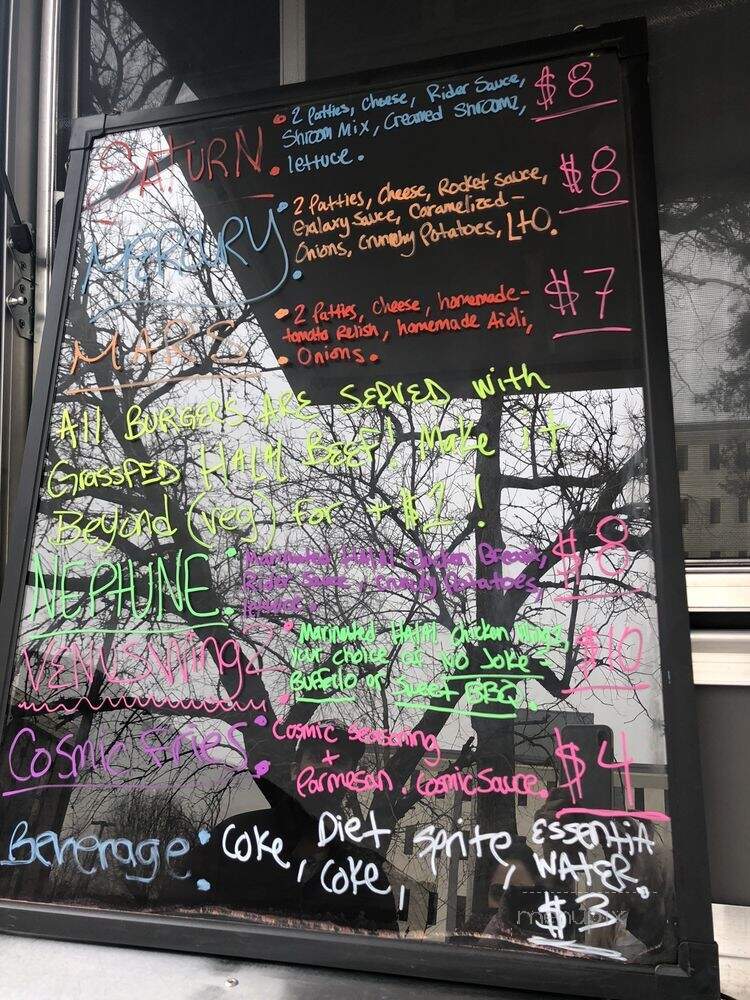 SATURN: 2 Patties, Cheese, Rider Sauce, $8
Shroom Mix, Creamed Shroomz,
lettuce.
MERCURY: 2 Patties, Cheese, Rocket Sauce, $8
Galaxy Sauce, Caramelized-
Onions, Crunchy Potatoes, LTO.
MARS: 2 Patties, Cheese, homemade- $7
tomato Relish, homemade Aioli,
Onions.
All BURGERS ARE SERVED with
GrassFED HALAL BEEF! Make it
Beyond (veg) for + $2 !
NEPTUNE: Marinated HALAL Chicken Breast, $8
Rider Sauce, Crunchy Potatoes,
lettuce.
VENUS WingZ: Marinated HALAL Chicken Wings, $10
your choice of NO JOKE-
Buffalo or Sweet BBQ.
Cosmic Fries: Cosmic Seasoning $4
+
Parmesan. Cosmic Sauce.
Beverage: Coke, Diet Coke, Sprite, ESSENTiA WATER
$3